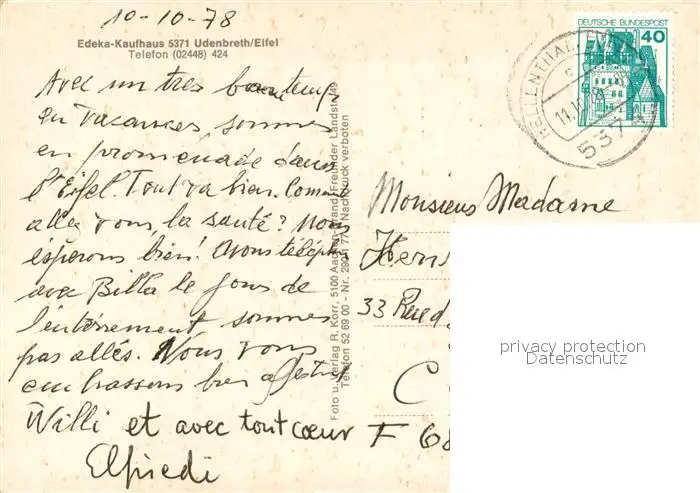 10-10-78
Edeka-Kaufhaus 5371 Udenbreth/Eifel
Telefon (02448) 424
Avec un très beau temps
en vacances, sommes
en promenade dans
l'Eifel. Tout va bien. Comme
allez vous, la santé? Nous
espérons bien! Avons téléph
avec Billa le jours de
l'entèrrement, sommes
pas allés. Nous vous
embrassons bien
Willi et avec tout cœur
Elfriedi
Foto u. Verlag R. Korr, 5100 Aachen-Brand, Freunder Landstr.
Telefon 52 69 00 - Nr. 77 - Nachdruck verboten
DEUTSCHE BUNDESPOST
40
HELLENTHAL
11.10.78
537
Monsieur Madame
33 Rue d
C
F 68
privacy protection
Datenschutz